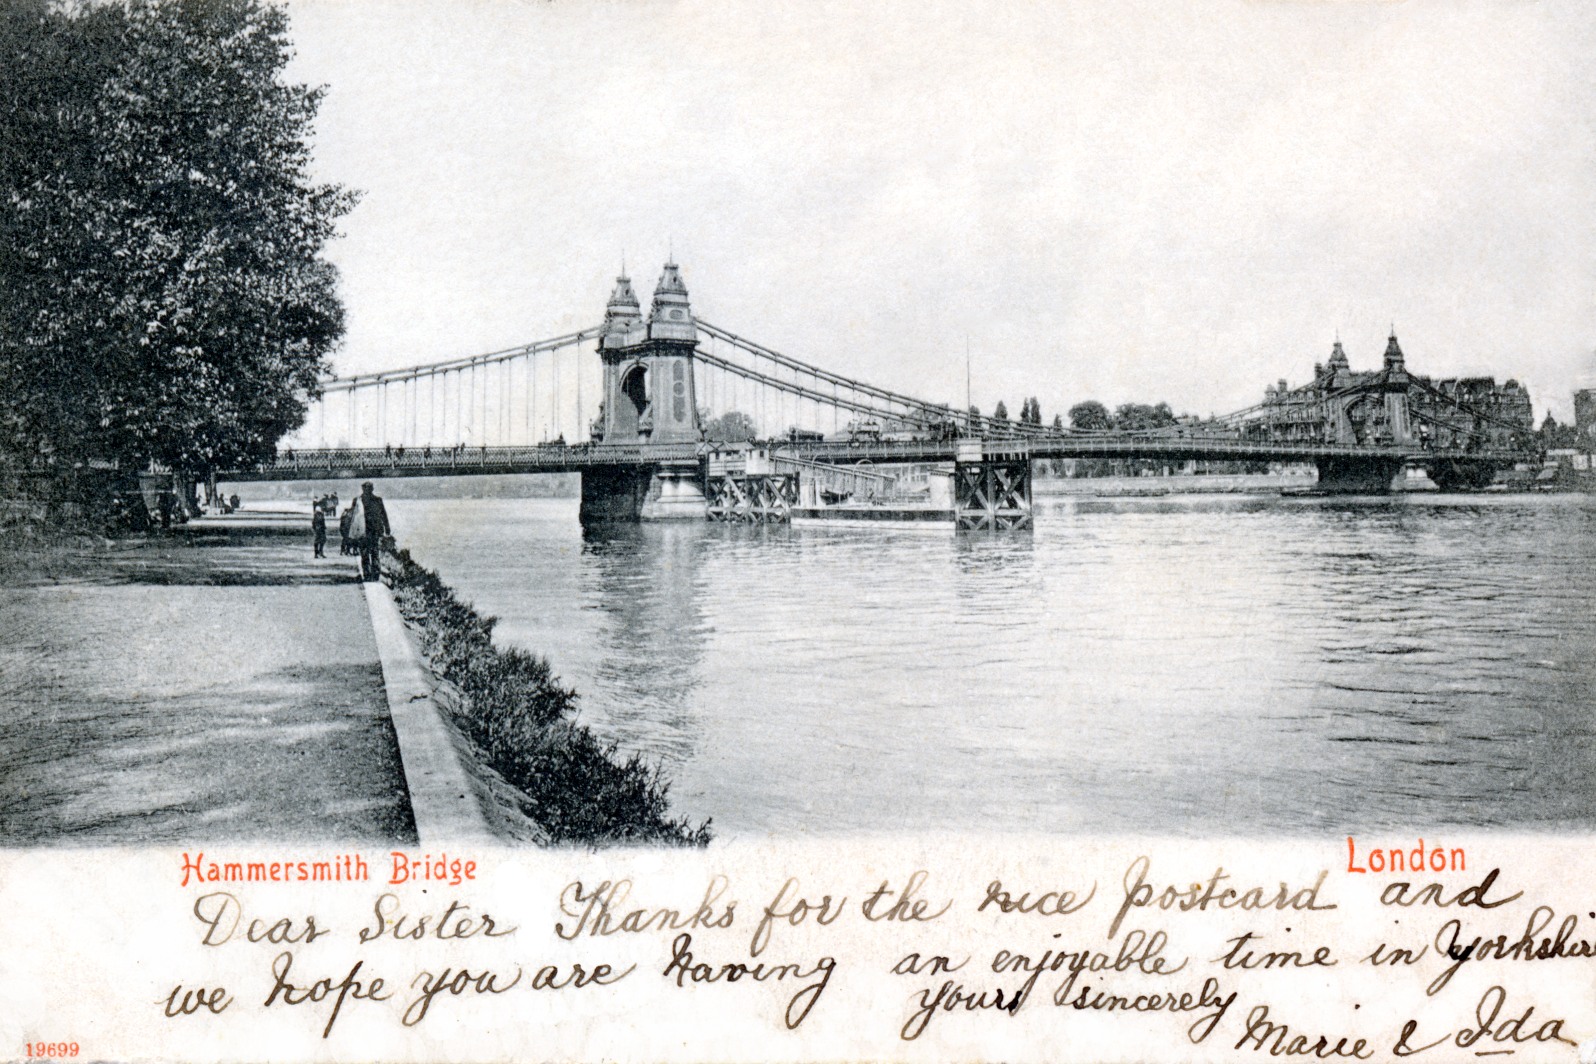 Hammersmith Bridge
London
Dear Sister Thanks for the nice Postcard and
we hope you are having an enjoyable time in Yorkshire
yours sincerely
Marie & Ida
19699